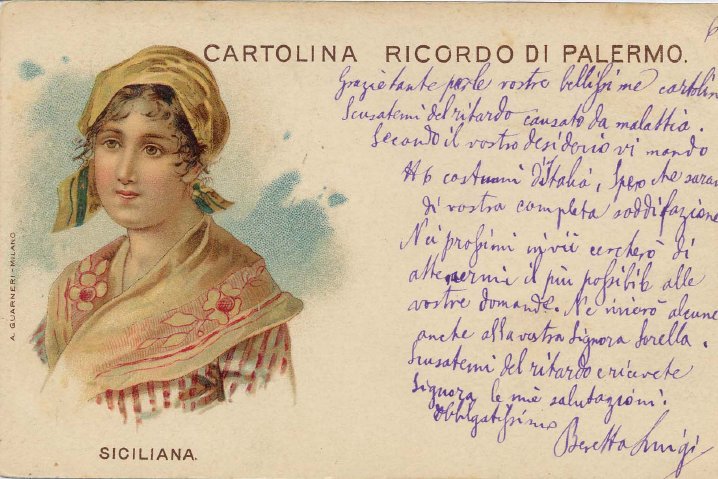 6
CARTOLINA RICORDO DI PALERMO.
Grazie tante per le vostre bellissime cartolin
Scusatemi del ritardo causato da malattia.
Secondo il vostro desiderio vi mando
6 costumi d'Italia, Spero che saran
di vostra completa soddifazione
Nei prossimi invii cercherò di
attenermi il più possibile alle
vostre domande. Ne invierò alcune
anche alla vostra Signora Sorella.
Scusatemi del ritardo e ricevete
Signora le mie salutazioni.
Obbligatissimo
Beretta Luigi
A. GUARNERI-MILANO
SICILIANA.